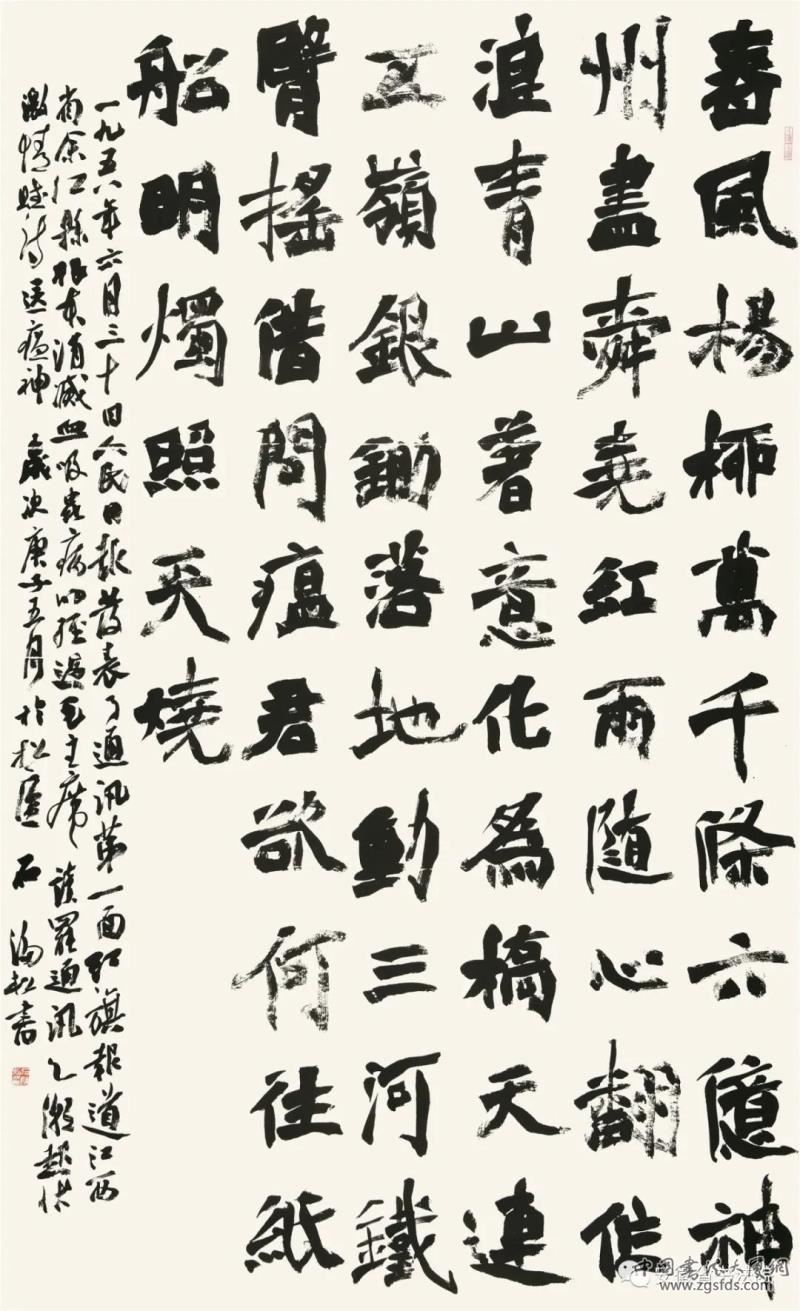 春風楊柳萬千條六億神
州盡舜堯紅雨隨心翻作
浪青山著意化為橋天連
五嶺銀鋤落地動三河鐵
臂搖借問瘟君欲何往紙
船明燭照天燒
一九五八年六月三十日人民日報發表了通訊第一面紅旗報道江西
省余江縣根本消滅血吸蟲病的經過毛主席讀罷通訊心潮起伏
激情賦詩送瘟神 歲次庚子五月於松 石 海松書
www.zgsfds.com